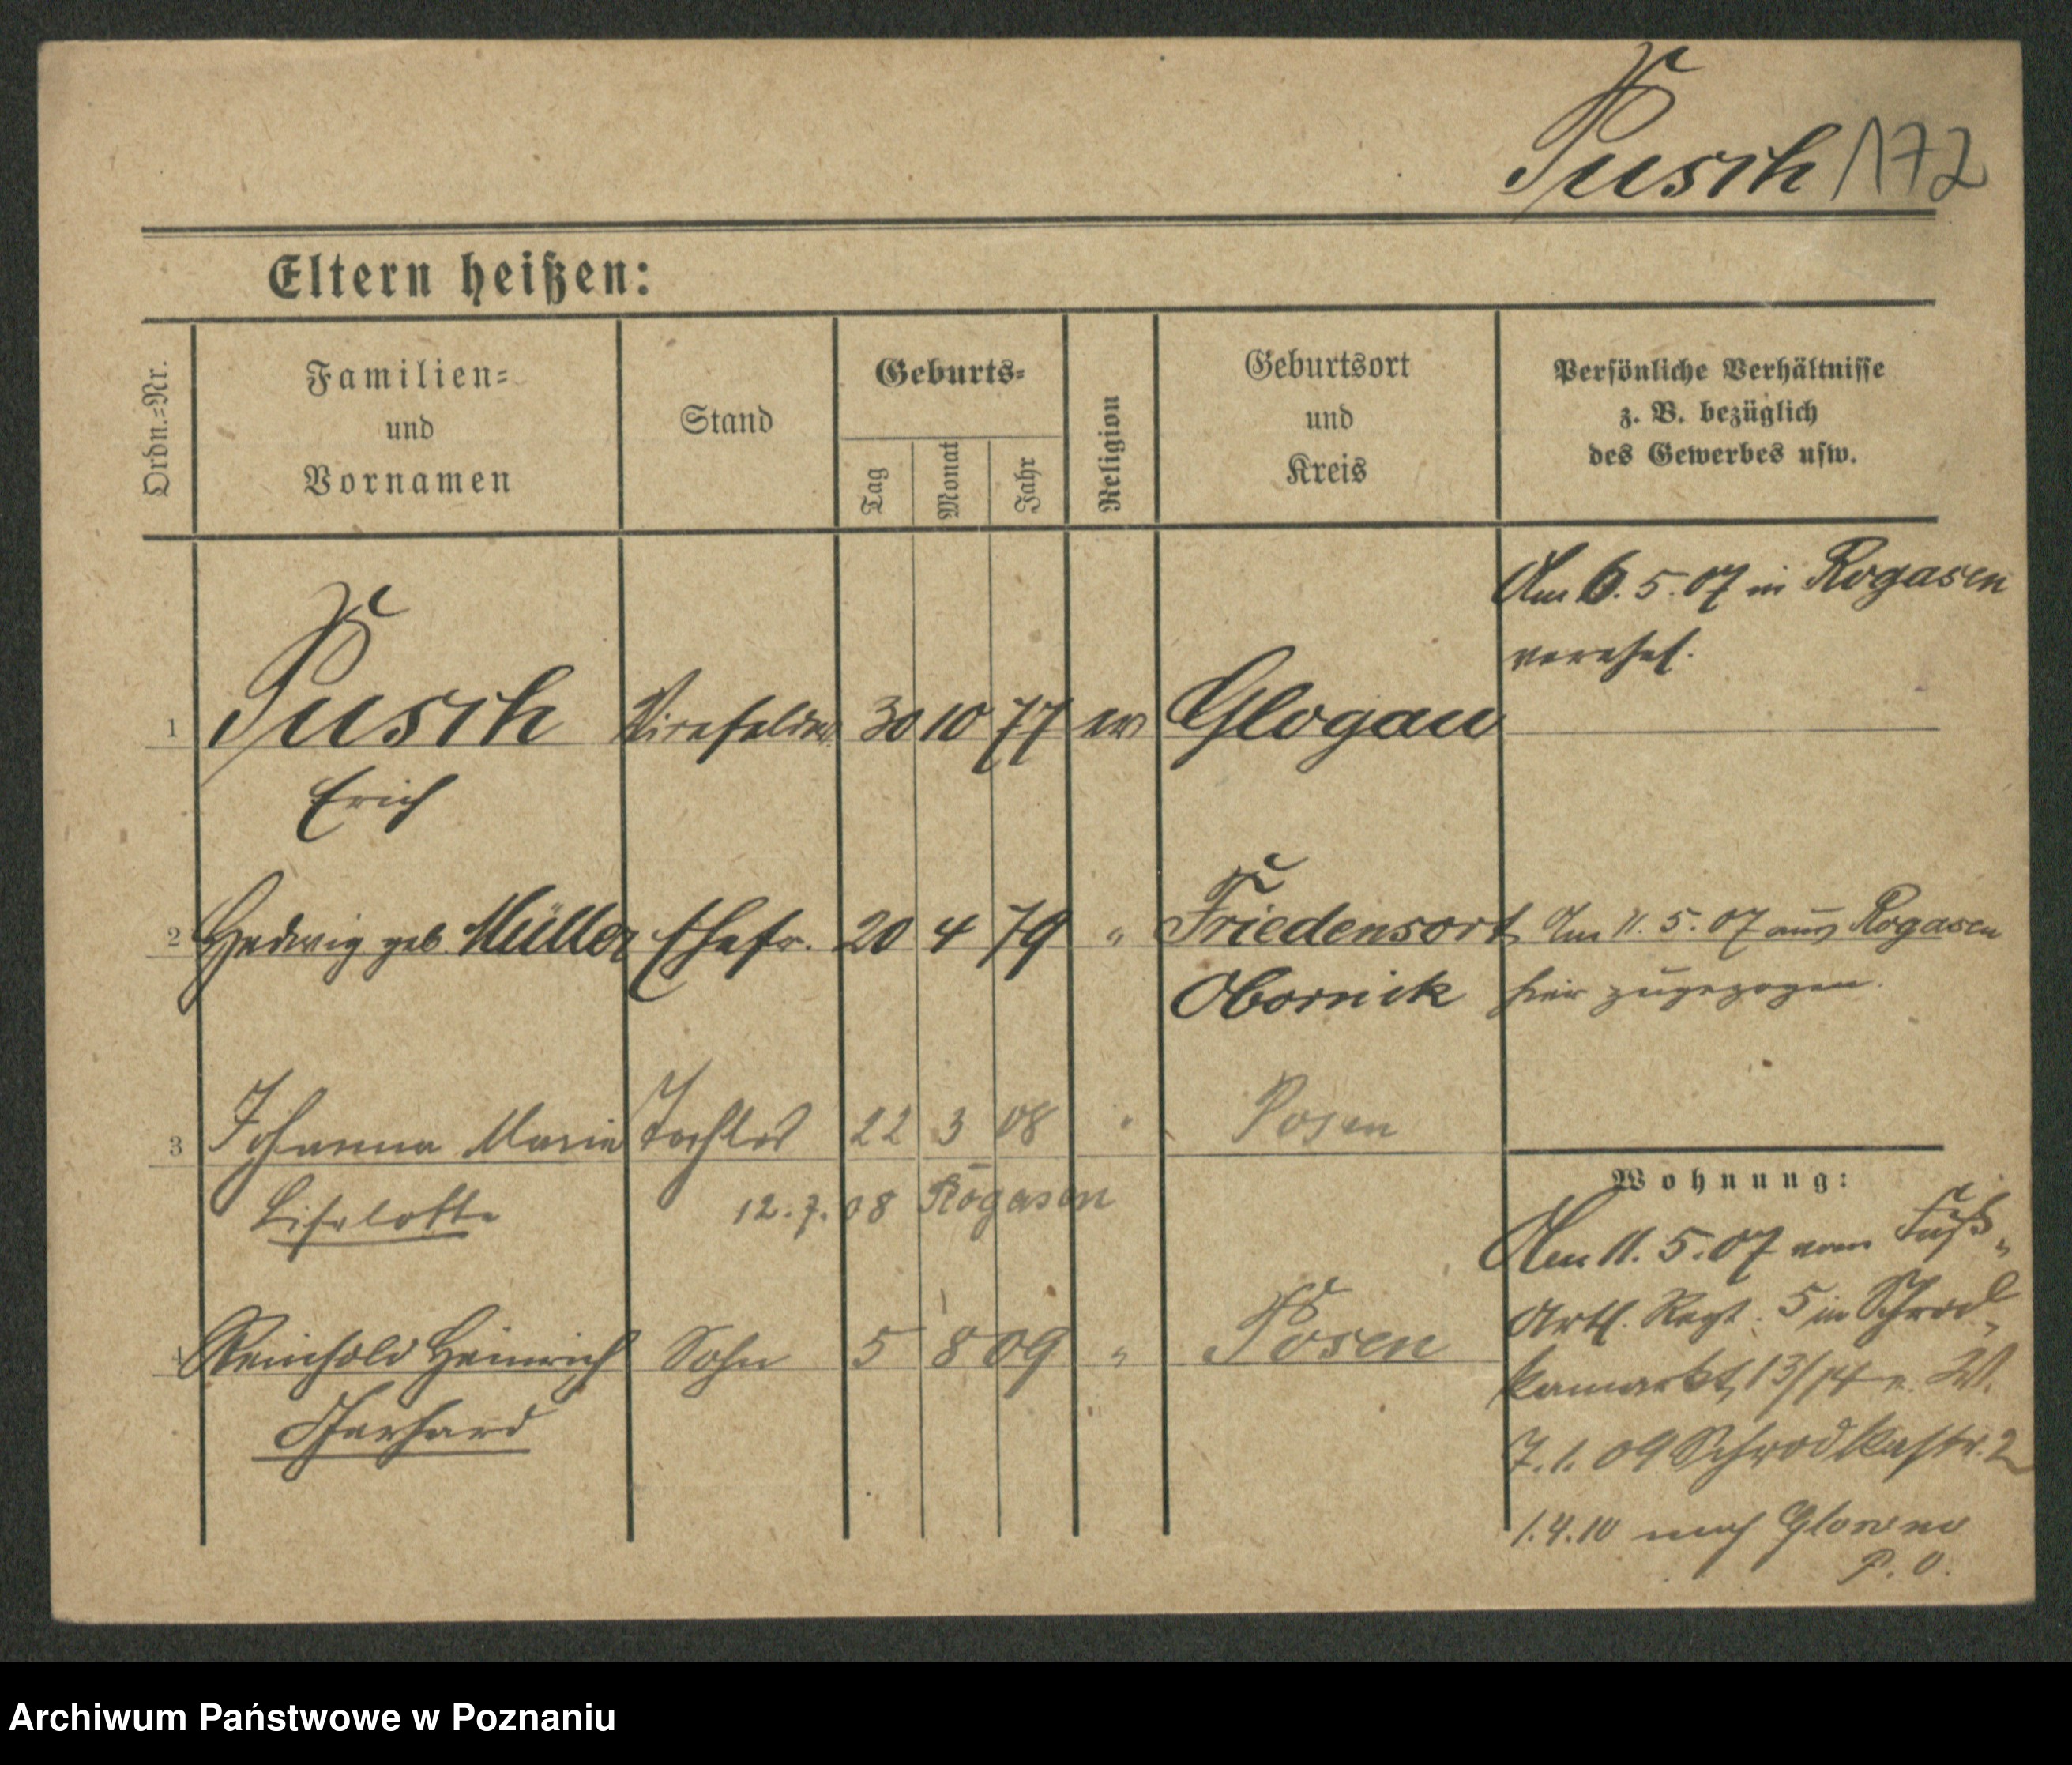 Pusch 172
Eltern heißen:
Ordn.-Nr.
Familien-
und
Vornamen
Stand
Geburts-
Tag
Monat
Jahr
Religion
Geburtsort
und
Kreis
Persönliche Verhältnisse
z. B. bezüglich
des Gewerbes usw.
Am 6. 5. 07 in Rogasen
verehel.
1 Pusch Vizefeldw 30 10 77 ev Glogau
Erich
2 Hedwig geb. Müller Ehefr. 20 4 79 " Friedensort Am 11. 5. 07 aus Rogasen
Obornik hier zugezogen.
3 Johanna Marie Tochter 22 3 08 " Posen
Liselotte 12. 7. 08 Rogasen
4 Reinhold Heinrich Sohn 5 8 09 " Posen
Gerhard
Wohnung:
Am 11. 5. 07 vom Fuß-
Artl. Regt. 5 in Schrod-
kamarkt 13/14 W.
7. 1. 09 Schrodkastr. 2
1. 4. 10 nach Glowno
P. O.
Archiwum Państwowe w Poznaniu